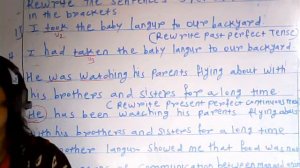 Rewrite the sentences
in the brackets
I took the baby langur to our backyard
V2
(Rewrite Past Perfect Tense)
I had taken the baby langur to our backyard
V3
He was watching his parents flying about with
his brothers and sisters for a long time
(Rewrite present perfect continuous Tense)
He has been watching his parents flying about
with his brothers and sisters for a long time
mother langur showed me that food was
of Communication between